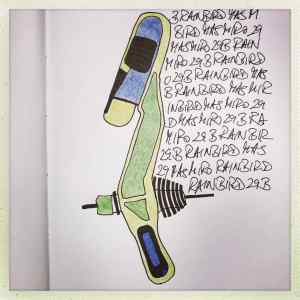 BRAINBIRD MAS M
BIRD MAS MIRO 29
MAS MIRO 29 B RAIN
MIRO 29 B RAINBIRD
O 29 B RAINBIRD MAS
B RAINBIRD MAS MIR
INBIRD MAS MIRO 29
D MAS MIRO 29 B RA
MIRO 29 B RAINBIR
29 B RAINBIRD MAS
29 MAS MIRO RAINBIRD
RAINBIRD 29 B